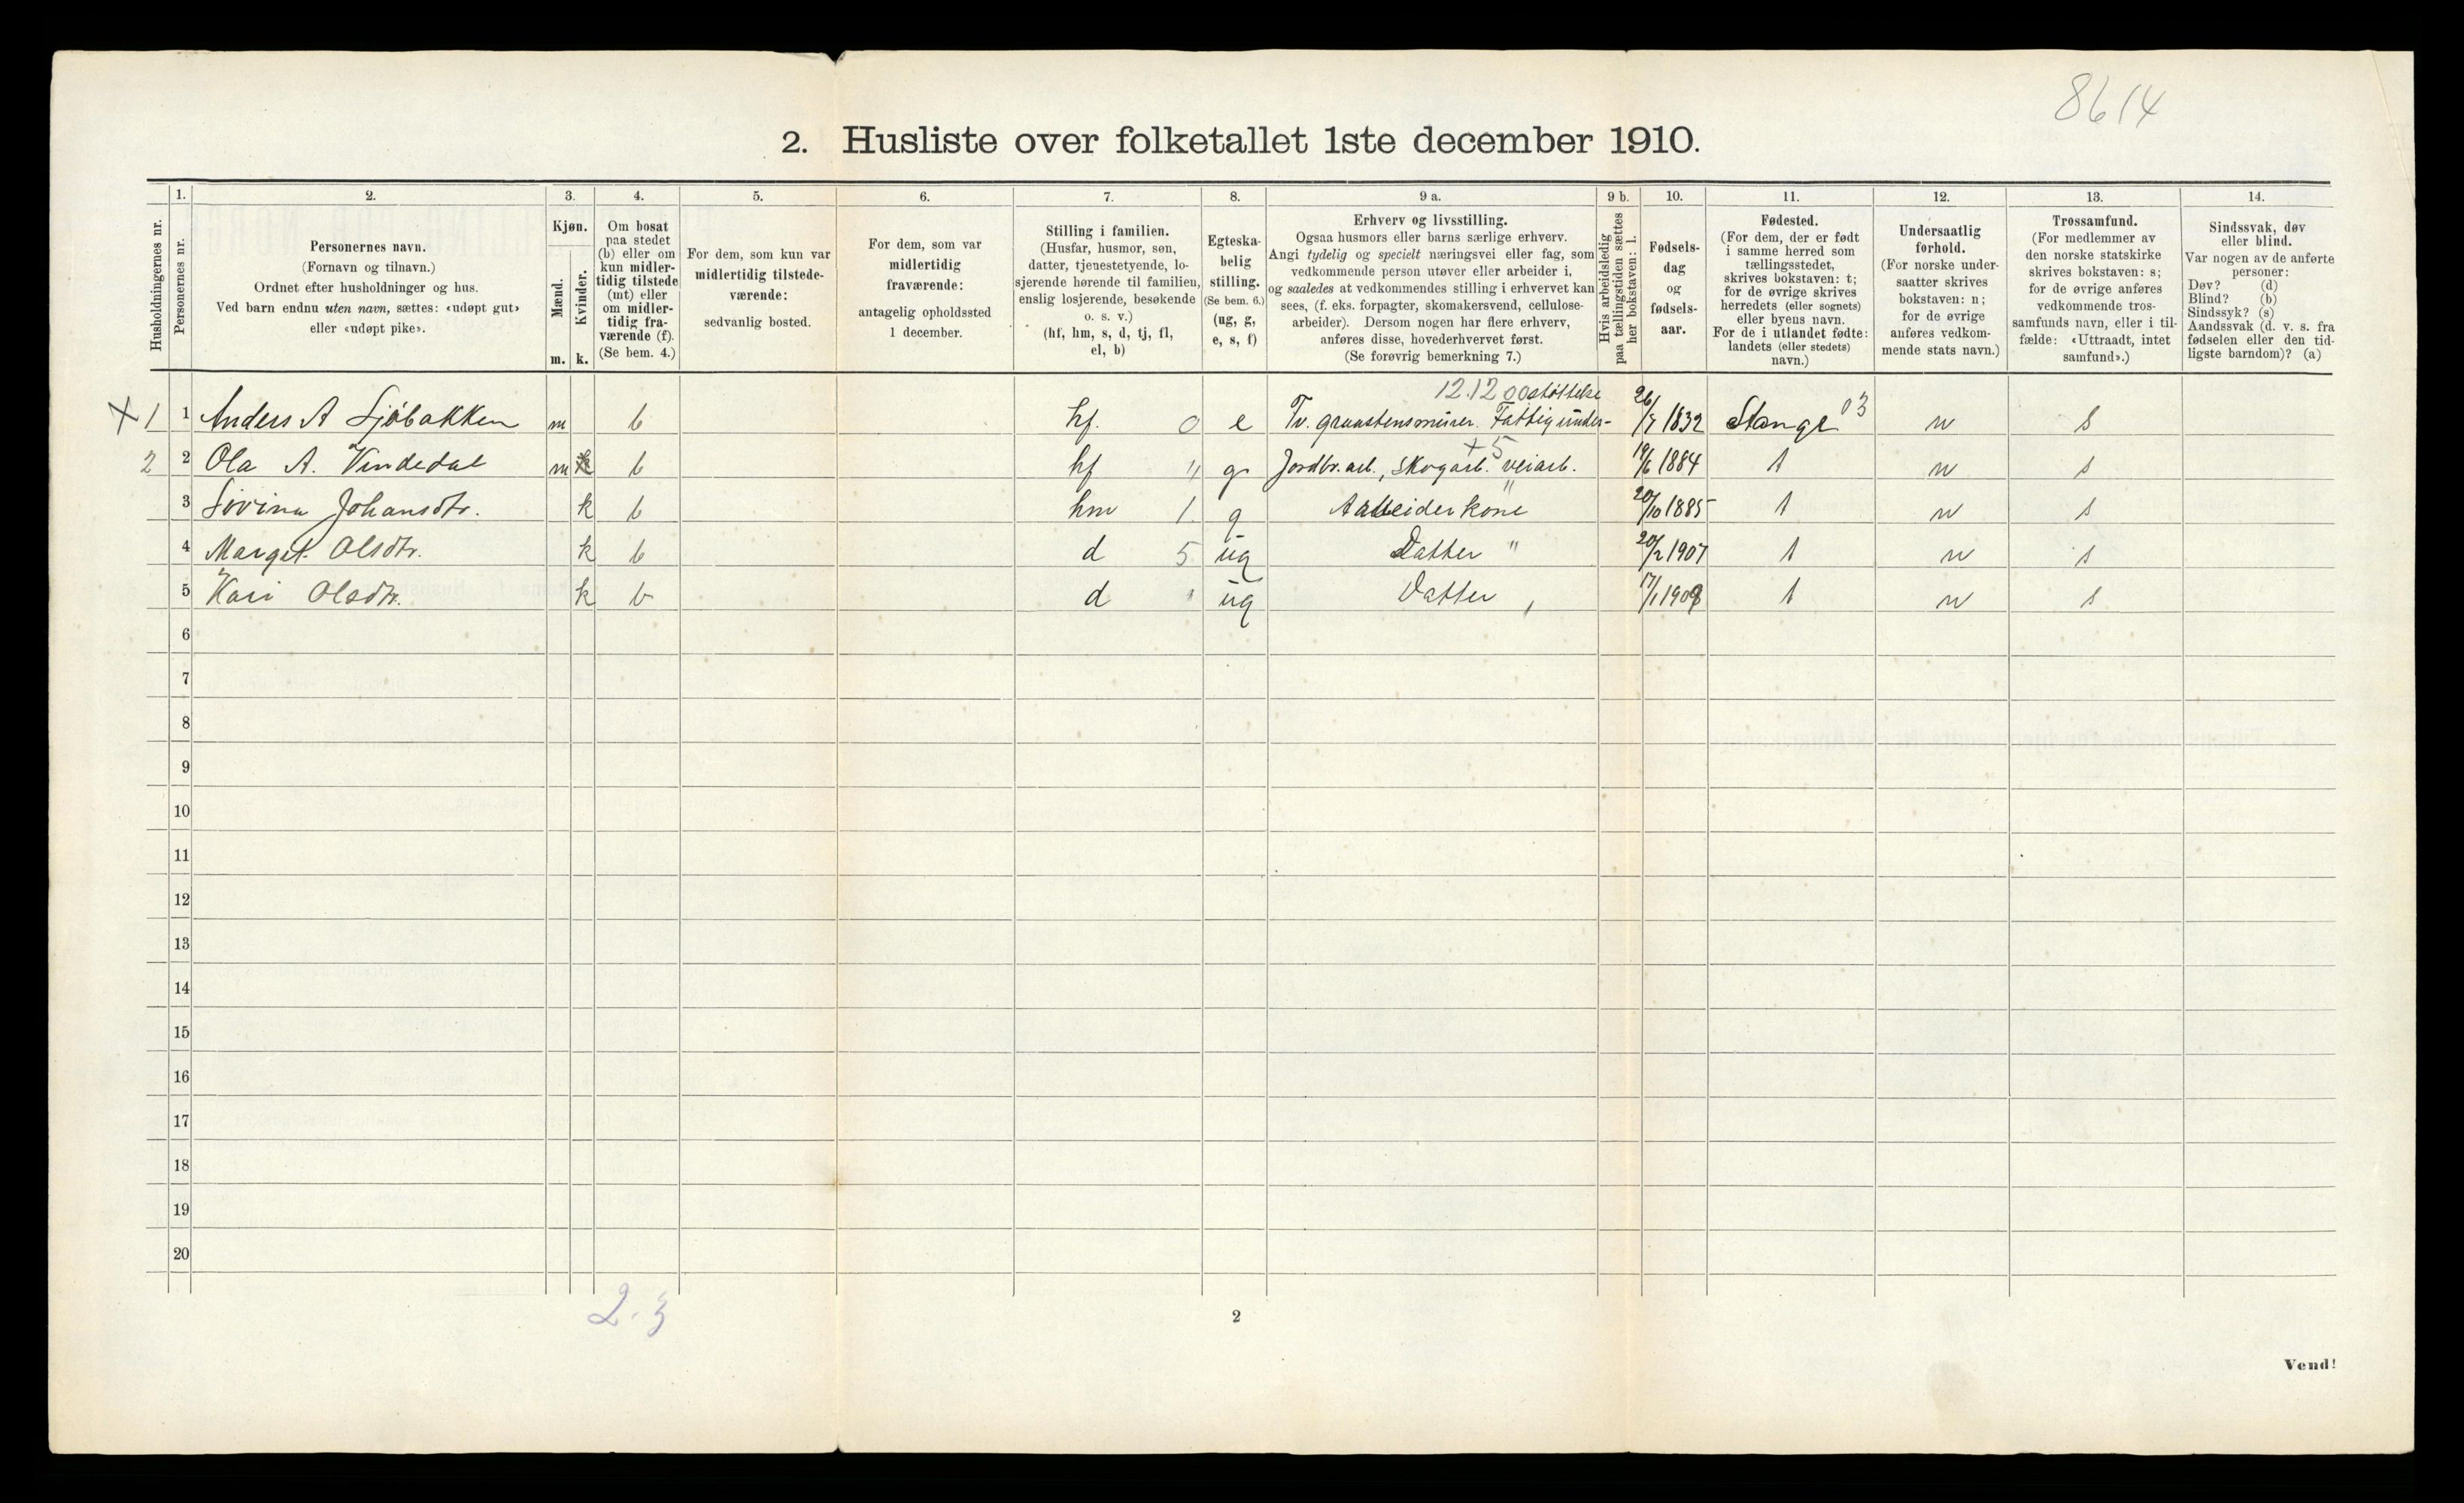 8614
2. Husliste over folketallet 1ste december 1910.
Husholdningernes nr.
1.
Personernes nr.
2.
Personernes navn.
(Fornavn og tilnavn.)
Ordnet efter husholdninger og hus.
Ved barn endnu uten navn, sættes: «udøpt gut»
eller «udøpt pike».
3.
Kjøn.
Mænd.
Kvinder.
m. k.
4.
Om bosat
paa stedet
(b) eller om
kun midler-
tidig tilstede
(mt) eller
om midler-
tidig fra-
værende (f).
(Se bem. 4.)
5.
For dem, som kun var
midlertidig tilstede-
værende:
sedvanlig bosted.
6.
For dem, som var
midlertidig
fraværende:
antagelig opholdssted
1 december.
7.
Stilling i familien.
(Husfar, husmor, søn,
datter, tjenestetyende, lo-
sjerende hørende til familien,
enslig losjerende, besøkende
o. s. v.)
(hf, hm, s, d, tj, fl,
el, b)
8.
Egteska-
belig
stilling.
(Se bem. 6.)
(ug, g,
e, s, f)
9 a.
Erhverv og livsstilling.
Ogsaa husmors eller barns særlige erhverv.
Angi tydelig og specielt næringsvei eller fag, som
vedkommende person utøver eller arbeider i,
og saaledes at vedkommendes stilling i erhvervet kan
sees, (f. eks. forpagter, skomakersvend, cellulose-
arbeider). Dersom nogen har flere erhverv,
anføres disse, hovederhvervet først.
(Se forøvrig bemerkning 7.)
9 b.
Hvis arbeidsledig
paa tællingstiden sættes
her bokstaven: l.
10.
Fødsels-
dag
og
fødsels-
aar.
11.
Fødested.
(For dem, der er født
i samme herred som
tællingsstedet,
skrives bokstaven: t;
for de øvrige skrives
herredets (eller sognets)
eller byens navn.
For de i utlandet fødte:
landets (eller stedets)
navn.)
12.
Undersaatlig
forhold.
(For norske under-
saatter skrives
bokstaven: n;
for de øvrige
anføres vedkom-
mende stats navn.)
13.
Trossamfund.
(For medlemmer av
den norske statskirke
skrives bokstaven: s;
for de øvrige anføres
vedkommende tros-
samfunds navn, eller i til-
fælde: «Uttraadt, intet
samfund».)
14.
Sindssvak, døv
eller blind.
Var nogen av de anførte
personer:
Døv? (d)
Blind? (b)
Sindssyk? (s)
Aandssvak (d. v. s. fra
fødselen eller den tid-
ligste barndom)? (a)
12.12 00 støttelse
X 1 1 Anders A Sjøbakken m b hf. 0 e Tv. graastensmurer. Fattigunder- 26/7 1832 Stange 03 n s
+ 5
2 2 Ola A. Vindedal m k b hf " g Jordbr. arb., skogarb. veiarb. 19/6 1884 t n s
3 Lovina Johansdtr. k b hm 1 g Arbeiderkone " 20/10 1885 t n s
4 Marget Olsdtr. k b d 5 ug Datter " 20/2 1907 t n s
5 Kari Olsdtr. k b d " ug Datter " 17/1 1909 t n s
6
7
8
9
10
11
12
13
14
15
16
17
18
19
20
2. 3
2
Vend!